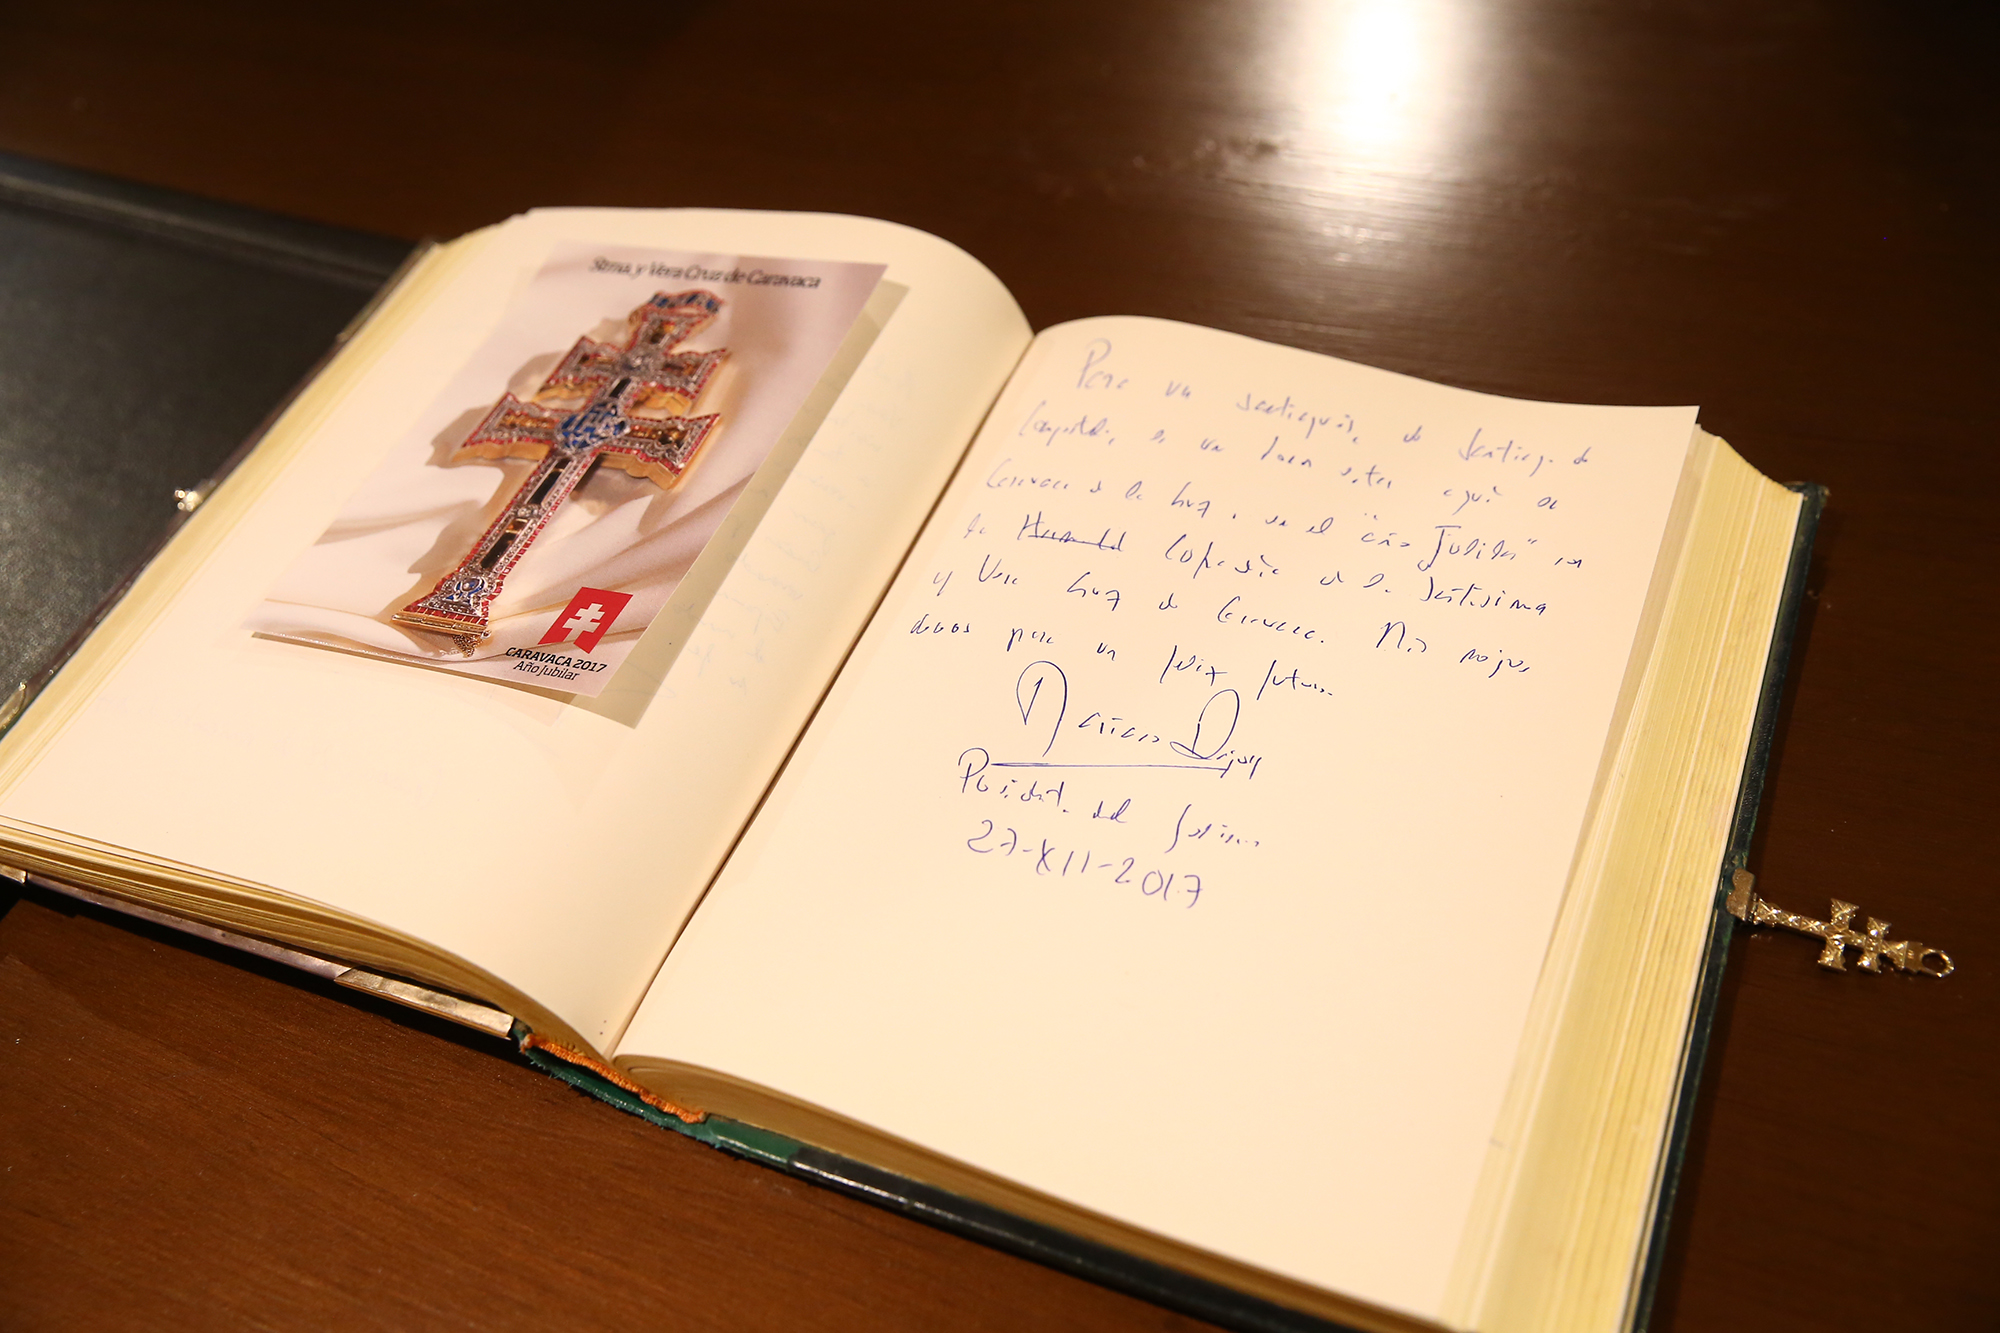 Stma y Vera Cruz de Caravaca
CARAVACA 2017
Año Jubilar
Para un santiagués, de Santiago de
Compostela, es un honor estar aquí en
Caravaca de la Cruz, en el "año Jubilar" con
la Cofradía de la Santísima
y Vera Cruz de Caravaca. Mis mejores
deseos para un feliz futuro.
Mariano Rajoy
Presidente del Gobierno
27-XII-2017